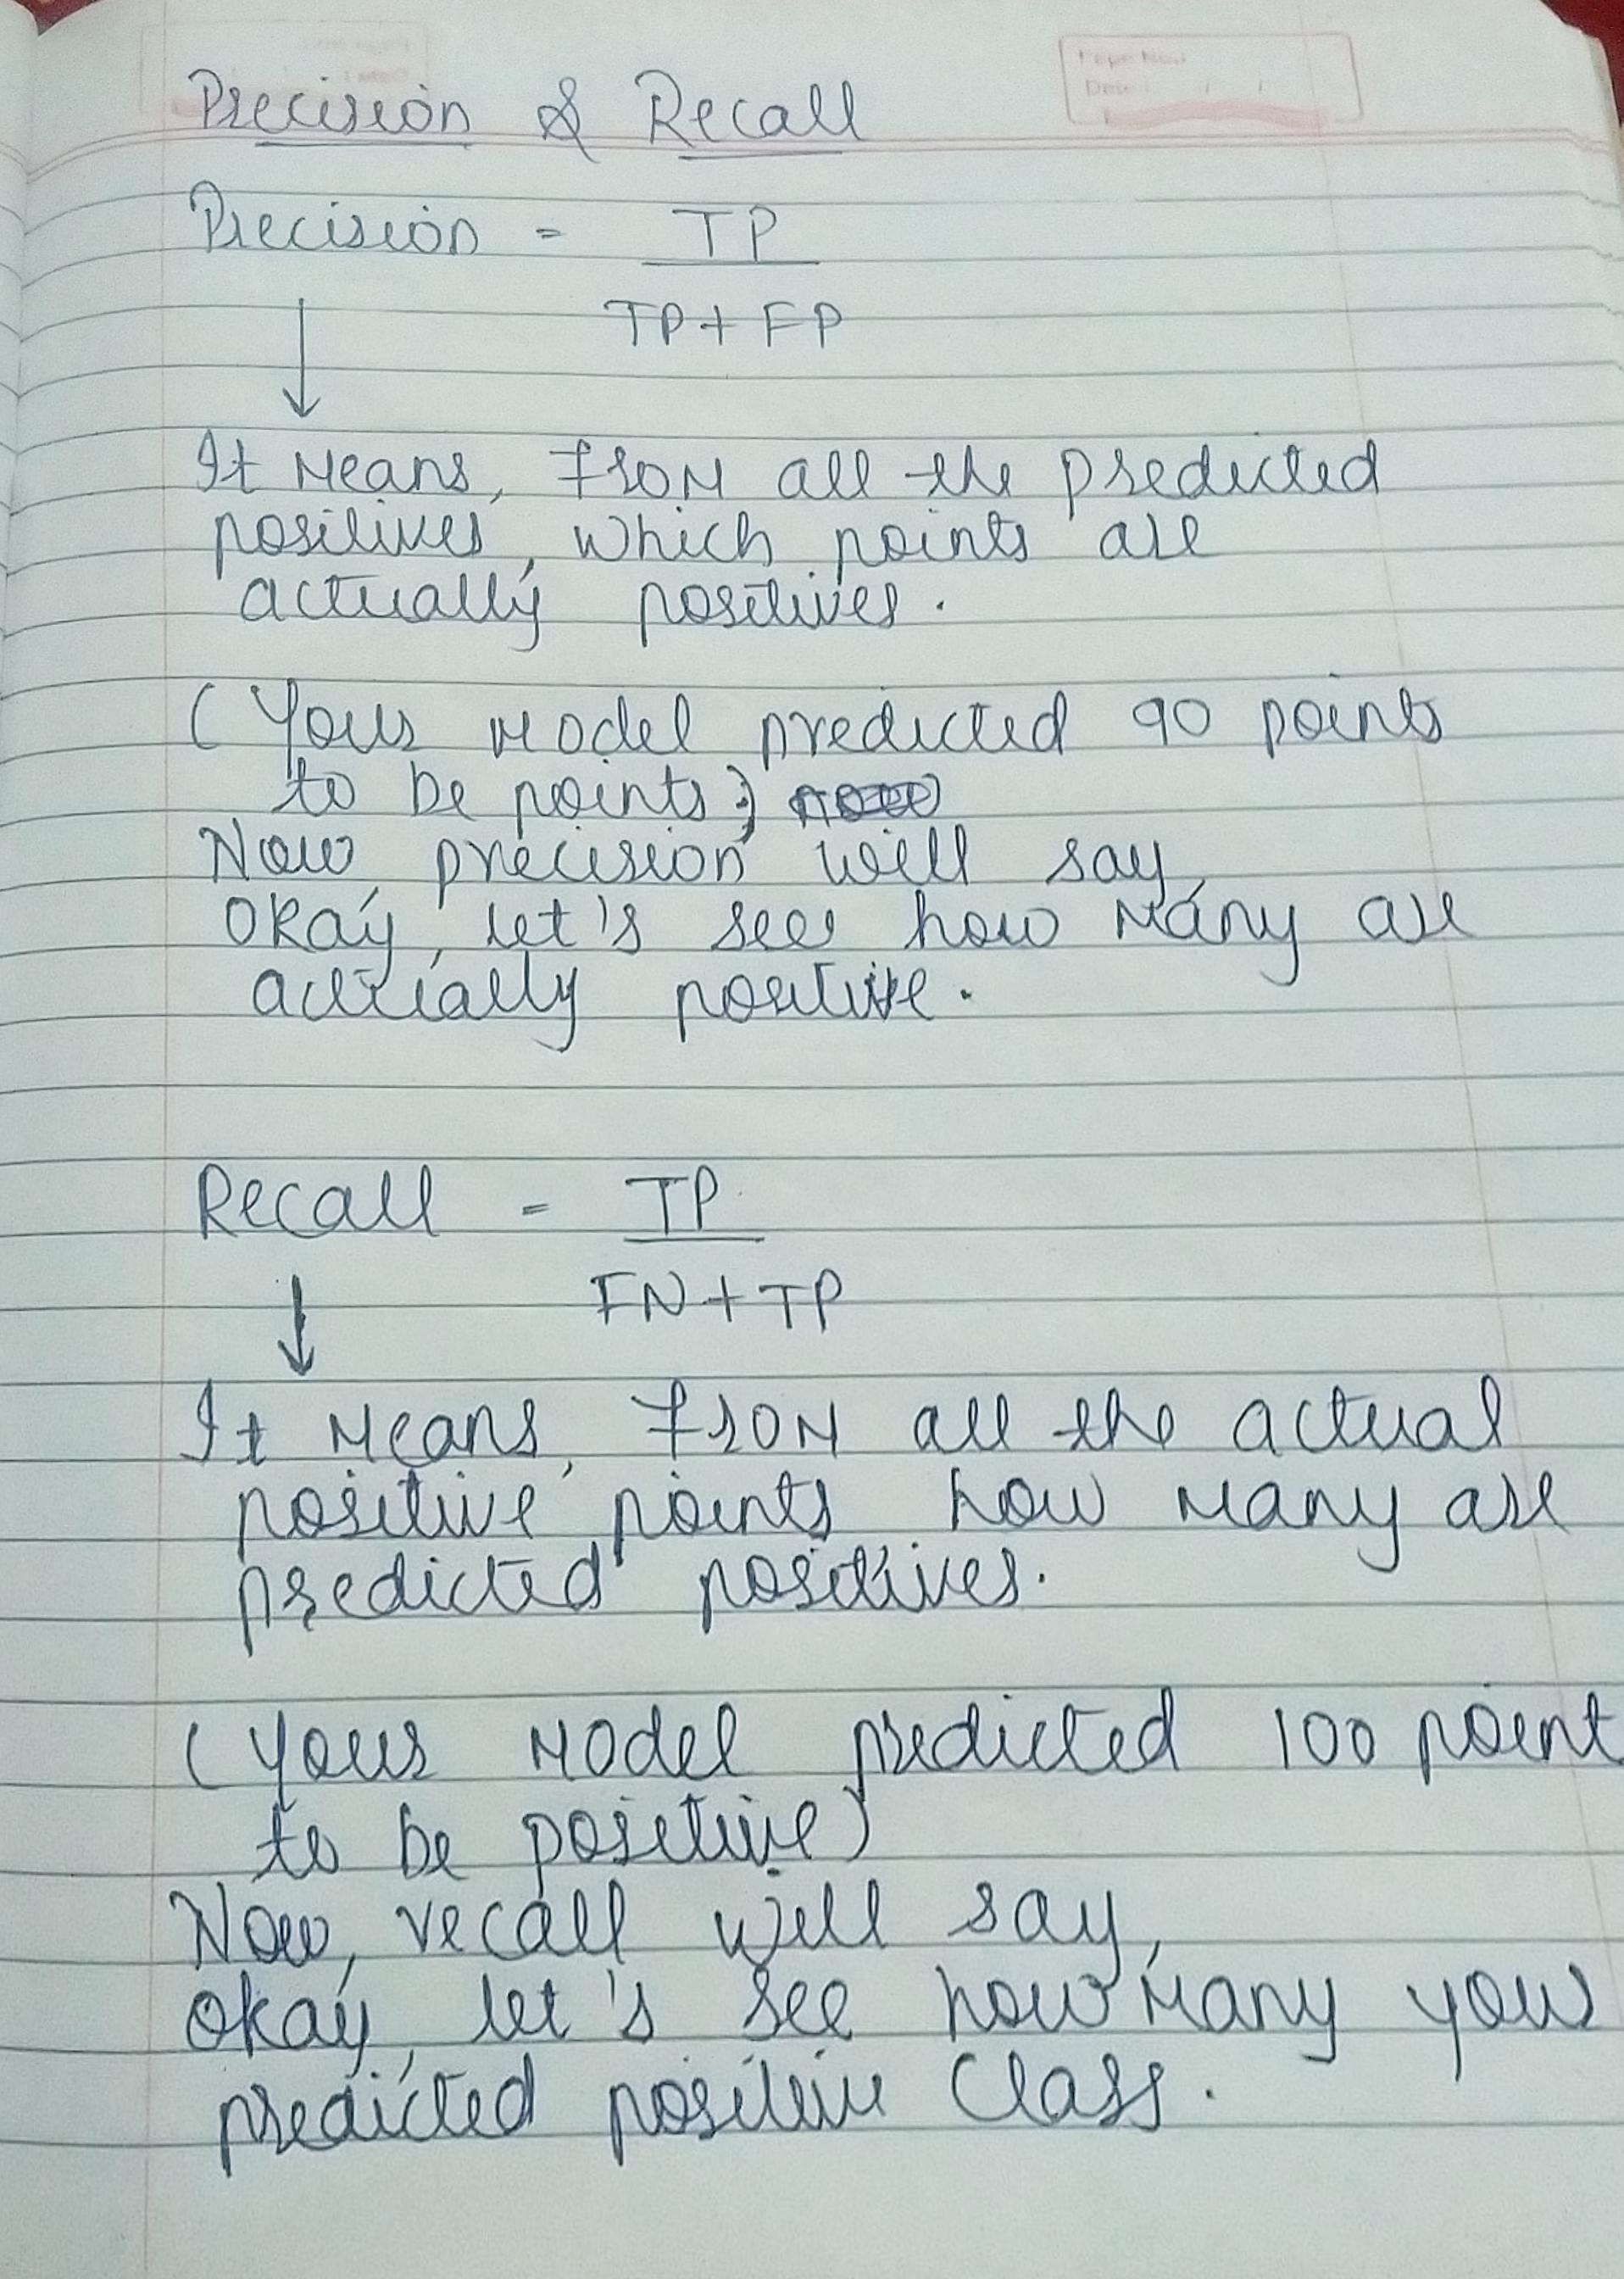 Page No.:
Date:
Precision & Recall
Precision = TP
TP + FP
It means, from all the predicted
positives, which points are
actually positives.
(Your model predicted 90 points
to be points;)
Now precision will say,
okay, let's see how many are
actually positive.
Recall = TP
FN + TP
It means, from all the actual
positive points how many are
predicted positives.
(Your model predicted 100 point
to be positive)
Now, recall will say,
okay, let's see how many you
predicted positive class.